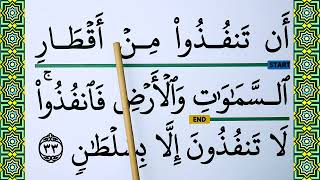 أَن تَنفُذُوا۟ مِنْ أَقْطَارِ
START
ٱلسَّمَـٰوَٰتِ وَٱلْأَرْضِ فَٱنفُذُوا۟ ۚ
END
لَا تَنفُذُونَ إِلَّا بِسُلْطَـٰنٍ ٣٣